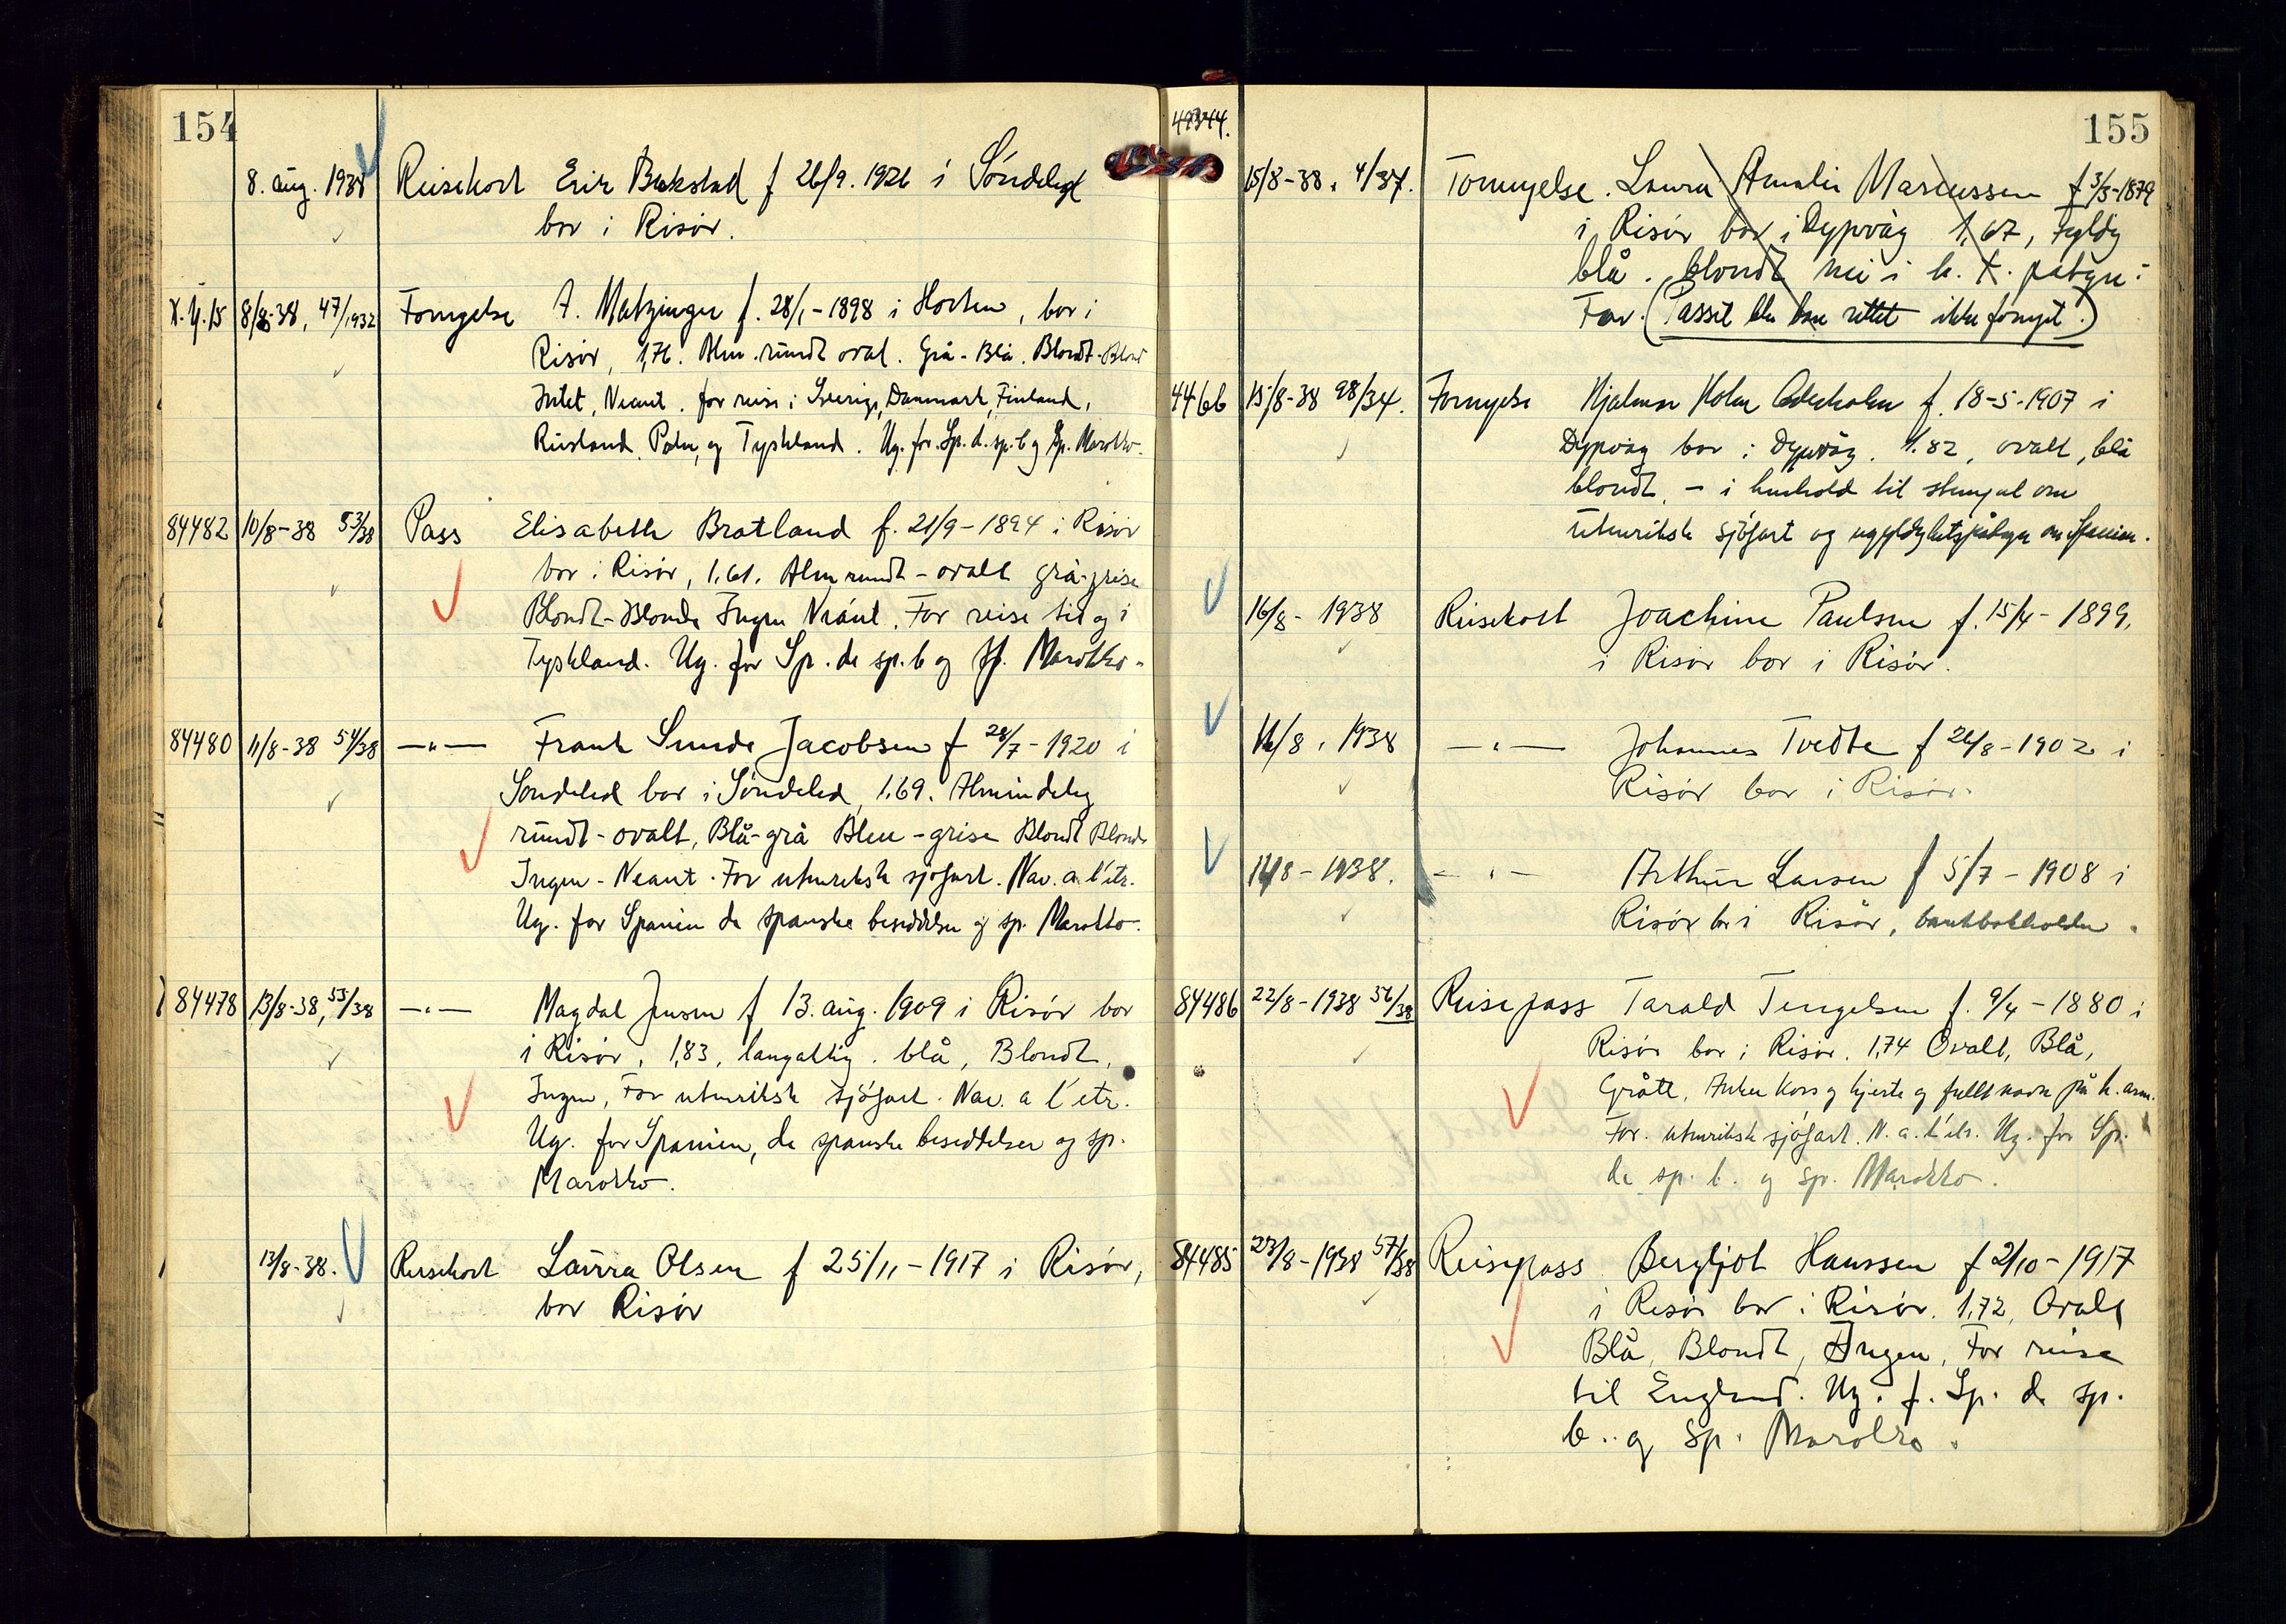 154
8. aug. 1938 Reisekort Erik Bakstad f 26/9. 1926 i Søndeled
bor i Risør.
X.Y.15 8/8-38, 47/1932 Fornyelse A. Matzinger f. 28/1-1898 i Horten, bor i
Risør, 1,76. Alm. rundt oval. Grå-Blå. Blondt-Blond
Intet, Neant. for reise i Sverige, Danmark, Finland,
Rusland, Polen, og Tyskland. Ug. for Sp. d. sp. b og Sp. Marokko.
84482 10/8-38 53/38 Pass Elisabeth Bratland f. 21/9-1894 i Risør
bor i Risør, 1,61. Alm rundt-ovalt grå-grise
Blondt-Blonde Ingen Néant. For reise til og i
Tyskland. Ug. for Sp. de sp. b og Sp. Marokko-
84480 11/8-38 54/38 —"— Frank Sunde Jacobsen f 28/7-1920 i
Søndeled bor i Søndeled, 1.69. Almindelig
rundt-ovalt, Blå-grå Bleu-grise Blondt Blonde
Ingen-Neant. For utenriksk sjøfart. Nav. a l'etr.
Ug. for Spanien de spanske besiddelser og sp. Marokko.
84478 13/8-38, 55/38 —"— Magdal Jensen f 13. aug. 1909 i Risør bor
i Risør, 1,83, langaktig. blå, Blondt,
Ingen, For utenriksk sjøfart. Nav. a l'etr.
Ug. for Spanien, de spanske besiddelser og sp.
Marokko.
13/8-38. Reisekort Laura Olsen f 25/11-1917 i Risør,
bor Risør
155
49344.
15/8-38. 4/37. Fornyelse. Laura Amalie Marcussen f 3/3-1879
i Risør bor i Dypvåg 1,67, Fyldig
blå. blondt nei i h. t. påtgn:
For. (Passet ble bare rettet ikke fornyet.)
4466 15/8-38 98/34. Fornyelse Hjalmar Holm f. 18-5-1907 i
Dypvåg bor i Dypvåg. 1.82, ovalt, blå
blondt, - i henhold til stempel om
utenriksk sjøfart og ugyldighetspåtegn om Spanien.
16/8-1938 Reisekort Joachim Paulsen f. 15/4-1899,
i Risør bor i Risør.
16/8. 1938 —"— Johannes Tvedte f 26/8-1902 i
Risør bor i Risør.
14/8-1938. —"— Arthur Larsen f 5/7-1908 i
Risør br i Risør, bankbokholder.
84486 22/8-1938 56/38 Reisepass Tarald Tengelsen f. 9/4-1880 i
Risør bor i Risør. 1,74 Ovalt, Blå,
Grått, Anker kors og hjerte og fullt navn på h. arm.
For. utenriksk sjøfart. N. a. l'etr. Ug. for Sp.
de sp. b. og sp. Marokko.
84485 23/8-1938 57/38 Reisepass Bergljot Hanssen f 2/10-1917
i Risør bor i Risør. 1,72, Ovalt
Blå, Blondt, Ingen, For reise
til England. Ug. f. Sp. d. sp.
b. og sp. Marokko.